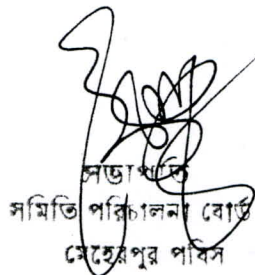 সভাপতি
সমিতি পরিচালনা বোর্ড
মেহেরপুর পবিস